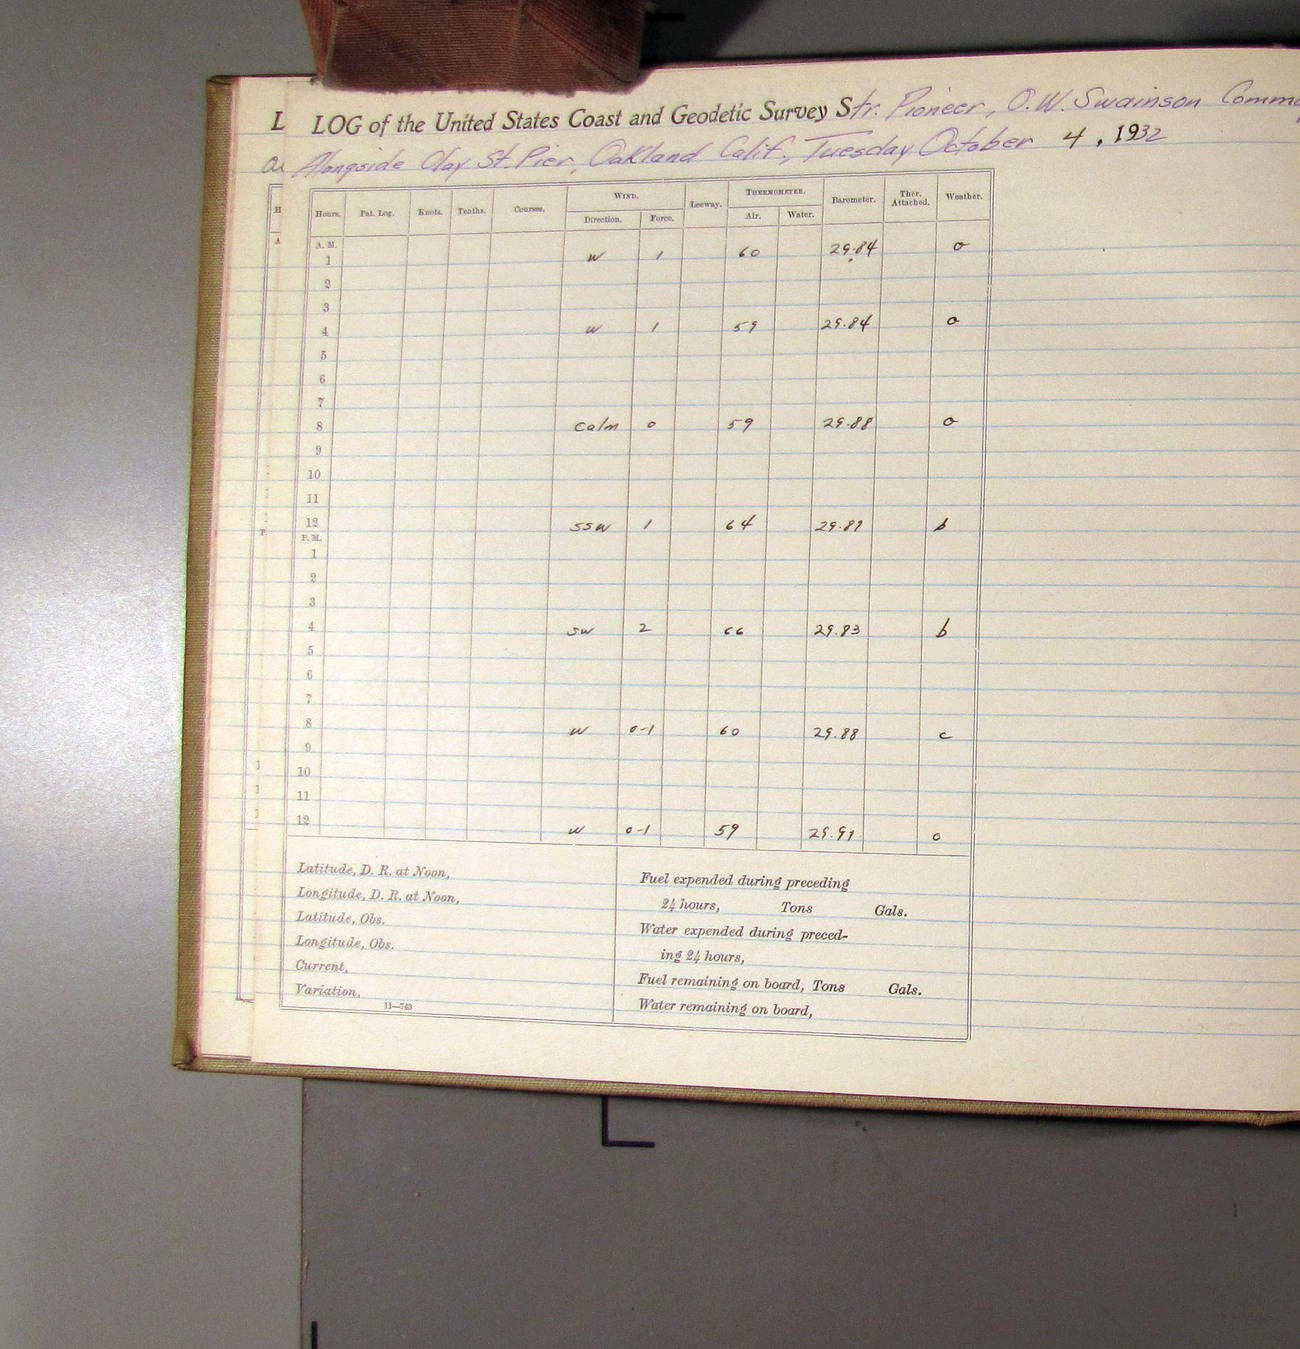 L LOG of the United States Coast and Geodetic Survey Str. Pioneer, O.W. Swainson Comm
Alongside Clay St. Pier, Oakland Calif., Tuesday October 4, 1932
Hours. Pat. Log. Knots. Tenths. Courses. WIND. Leeway. THERMOMETER. Barometer. Ther. Attached. Weather.
Direction. Force. Air. Water.
A. M.
1 W 1 60 29.84 o
2
3
4 W 1 59 29.84 o
5
6
7
8 calm 0 59 29.88 o
9
10
11
12 SSW 1 64 29.87 b
P. M.
1
2
3
4 SW 2 66 29.83 b
5
6
7
8 W 0-1 60 29.88 c
9
10
11
12 W 0-1 59 29.91 o
Latitude, D. R. at Noon,
Longitude, D. R. at Noon,
Latitude, Obs.
Longitude, Obs.
Current,
Variation,
11—763
Fuel expended during preceding
24 hours, Tons Gals.
Water expended during preced-
ing 24 hours,
Fuel remaining on board, Tons Gals.
Water remaining on board,